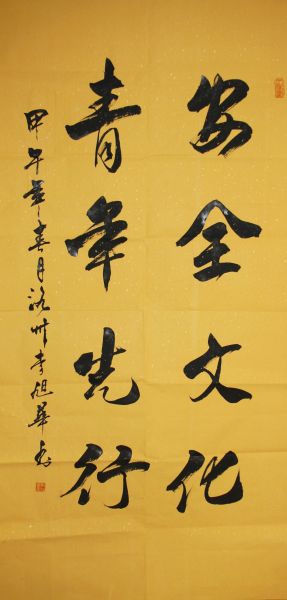 安全文化
青年先行
甲午年春月洛州李旭华书